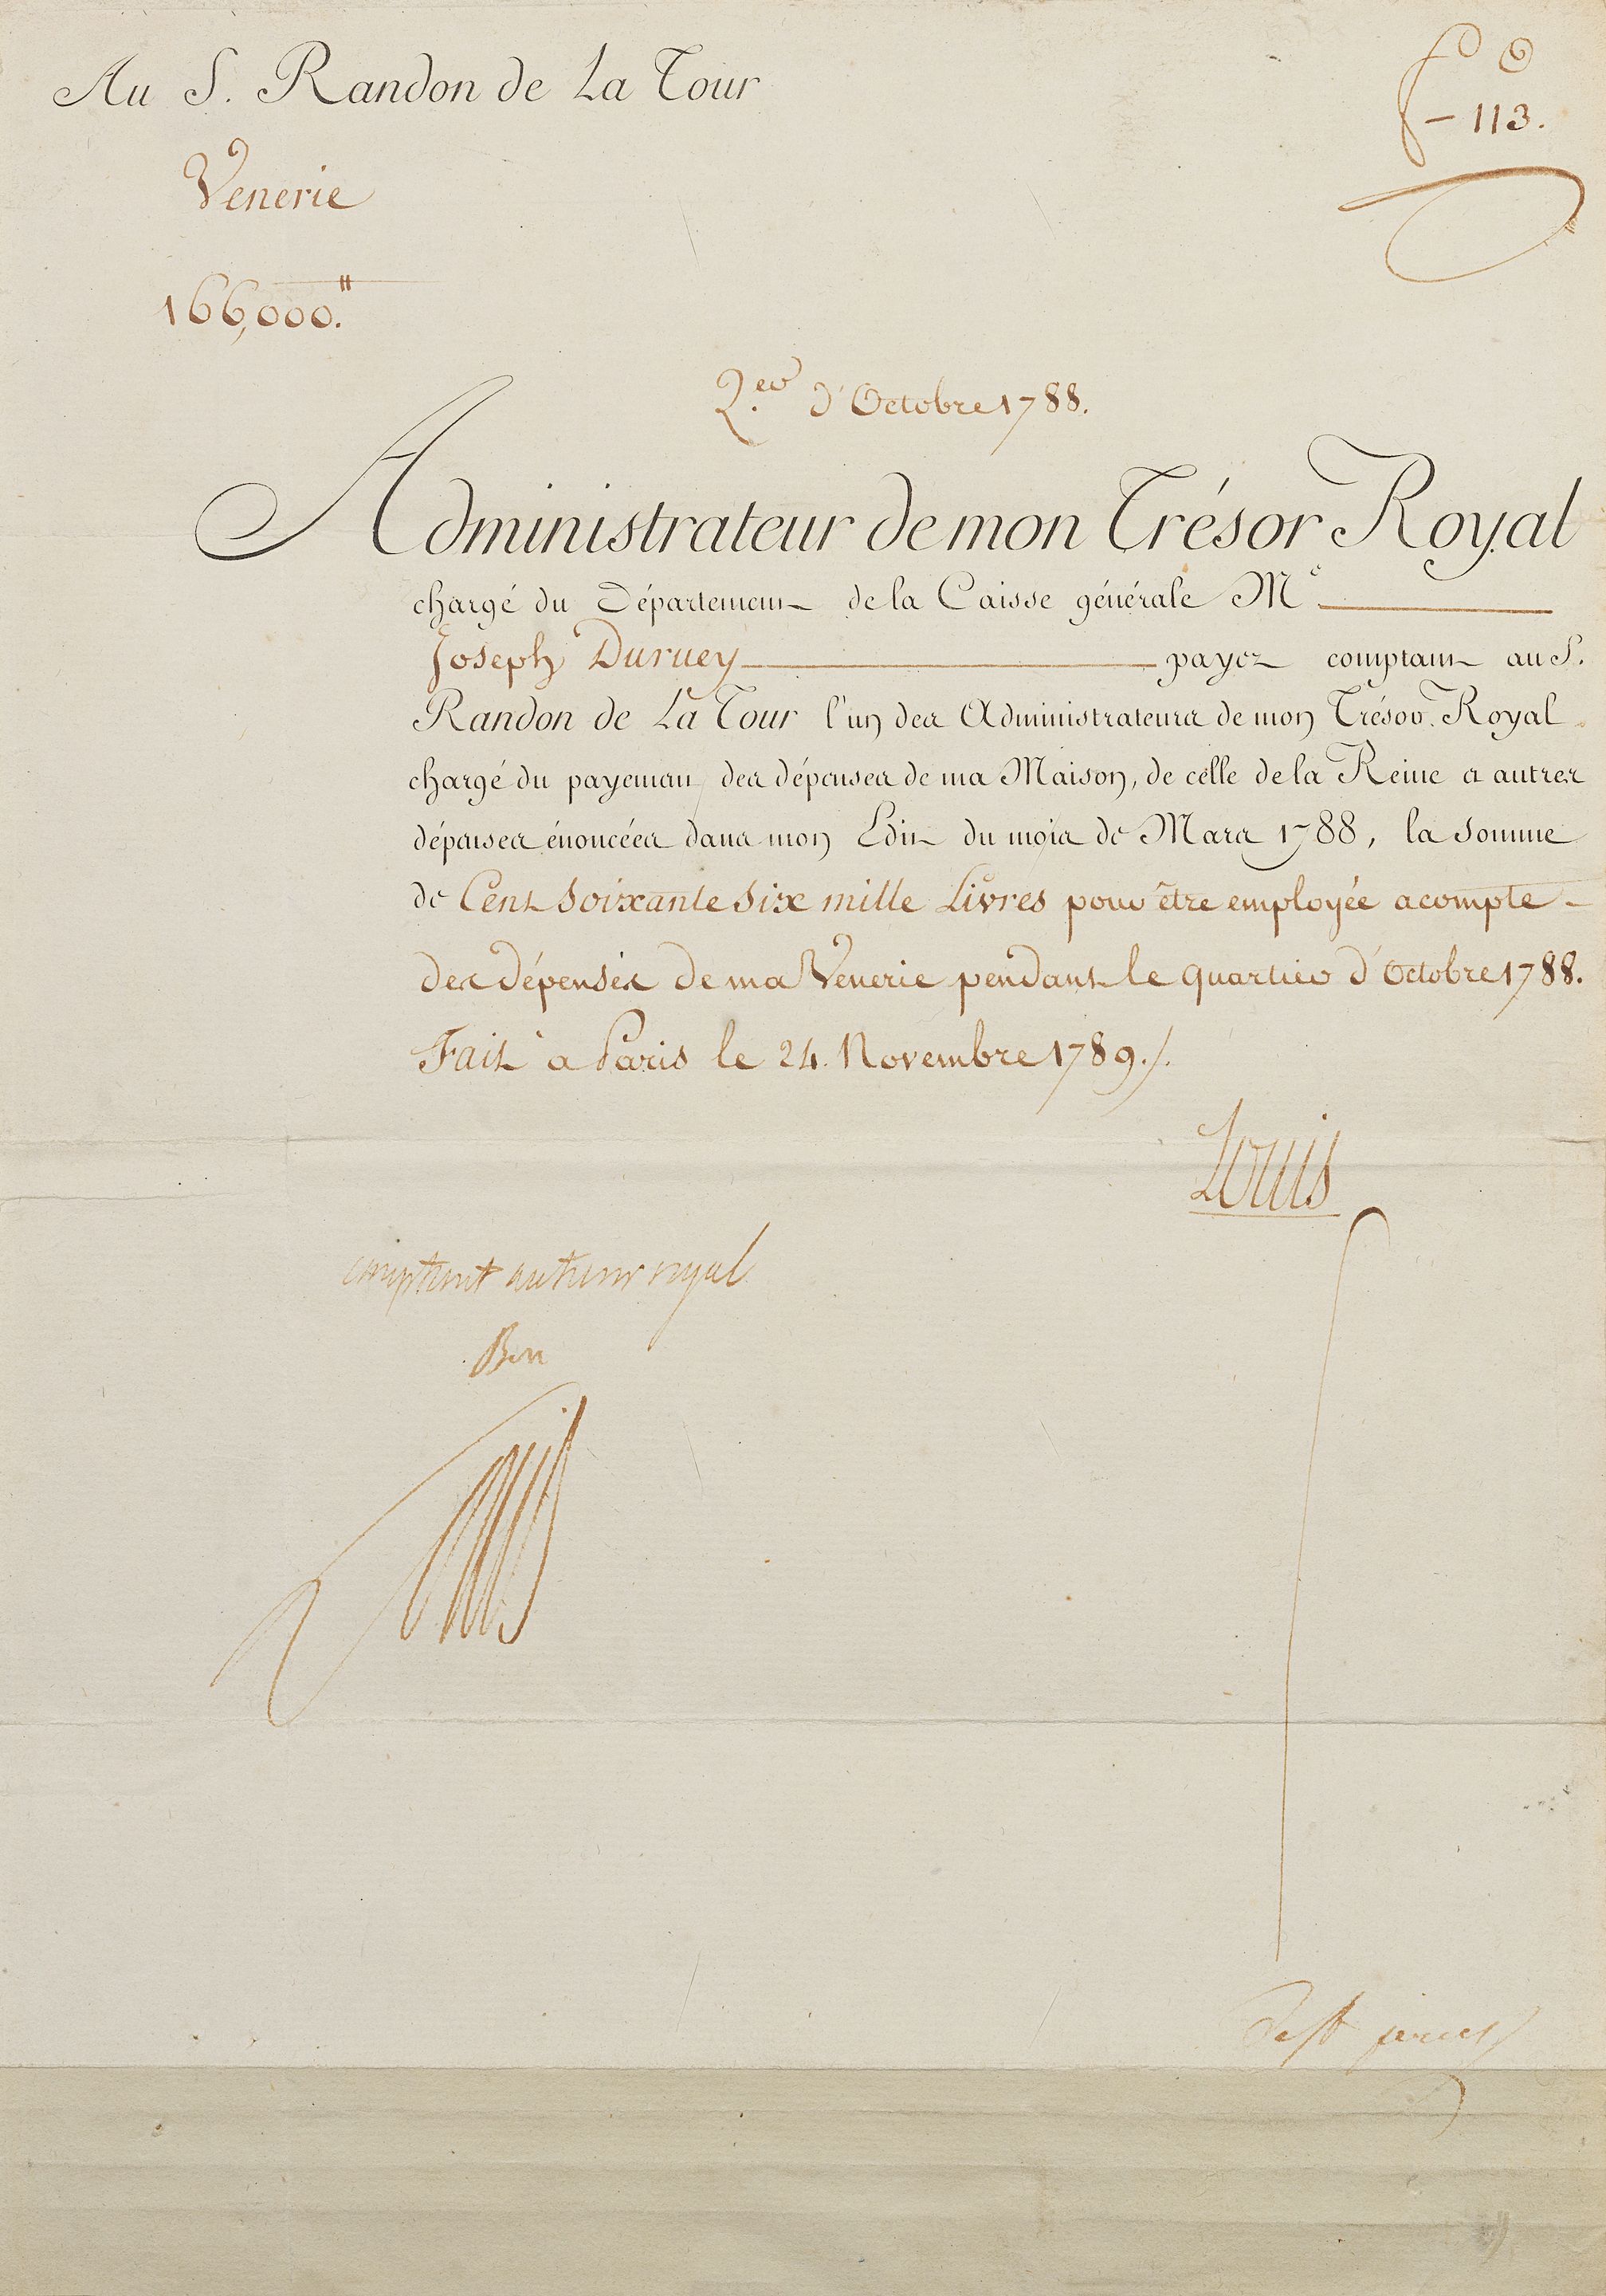 Au S. Randon de La Tour
113.
Venerie
166,000.
Q.er d'Octobre 1788.
Administrateur de mon Trésor Royal
chargé du Département de la Caisse générale Me
Joseph Duruey payez comptant au S.
Randon de La Tour l'un des Administrateurs de mon Trésor Royal
chargé du payement des dépenses de ma Maison, de celle de la Reine et autres
dépenses énoncées dans mon Edit du mois de Mars 1788, la somme
de Cent soixante six mille Livres pour être employée acompte
des dépenses de ma Venerie pendant le quartier d'Octobre 1788.
Fait a Paris le 24. Novembre 1789./.
Louis
comptant au tresor royal
Bon
Louis